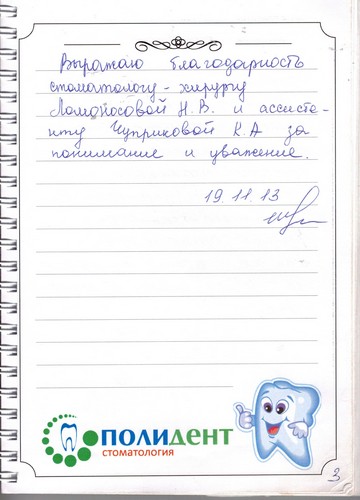 Выражаю благодарность
стоматологу-хирургу
Ломоносовой Н.В. и ассисте-
нту Чуприковой К.А за
понимание и уважение.
19.11.13
ПОЛИДЕНТ
СТОМАТОЛОГИЯ
3